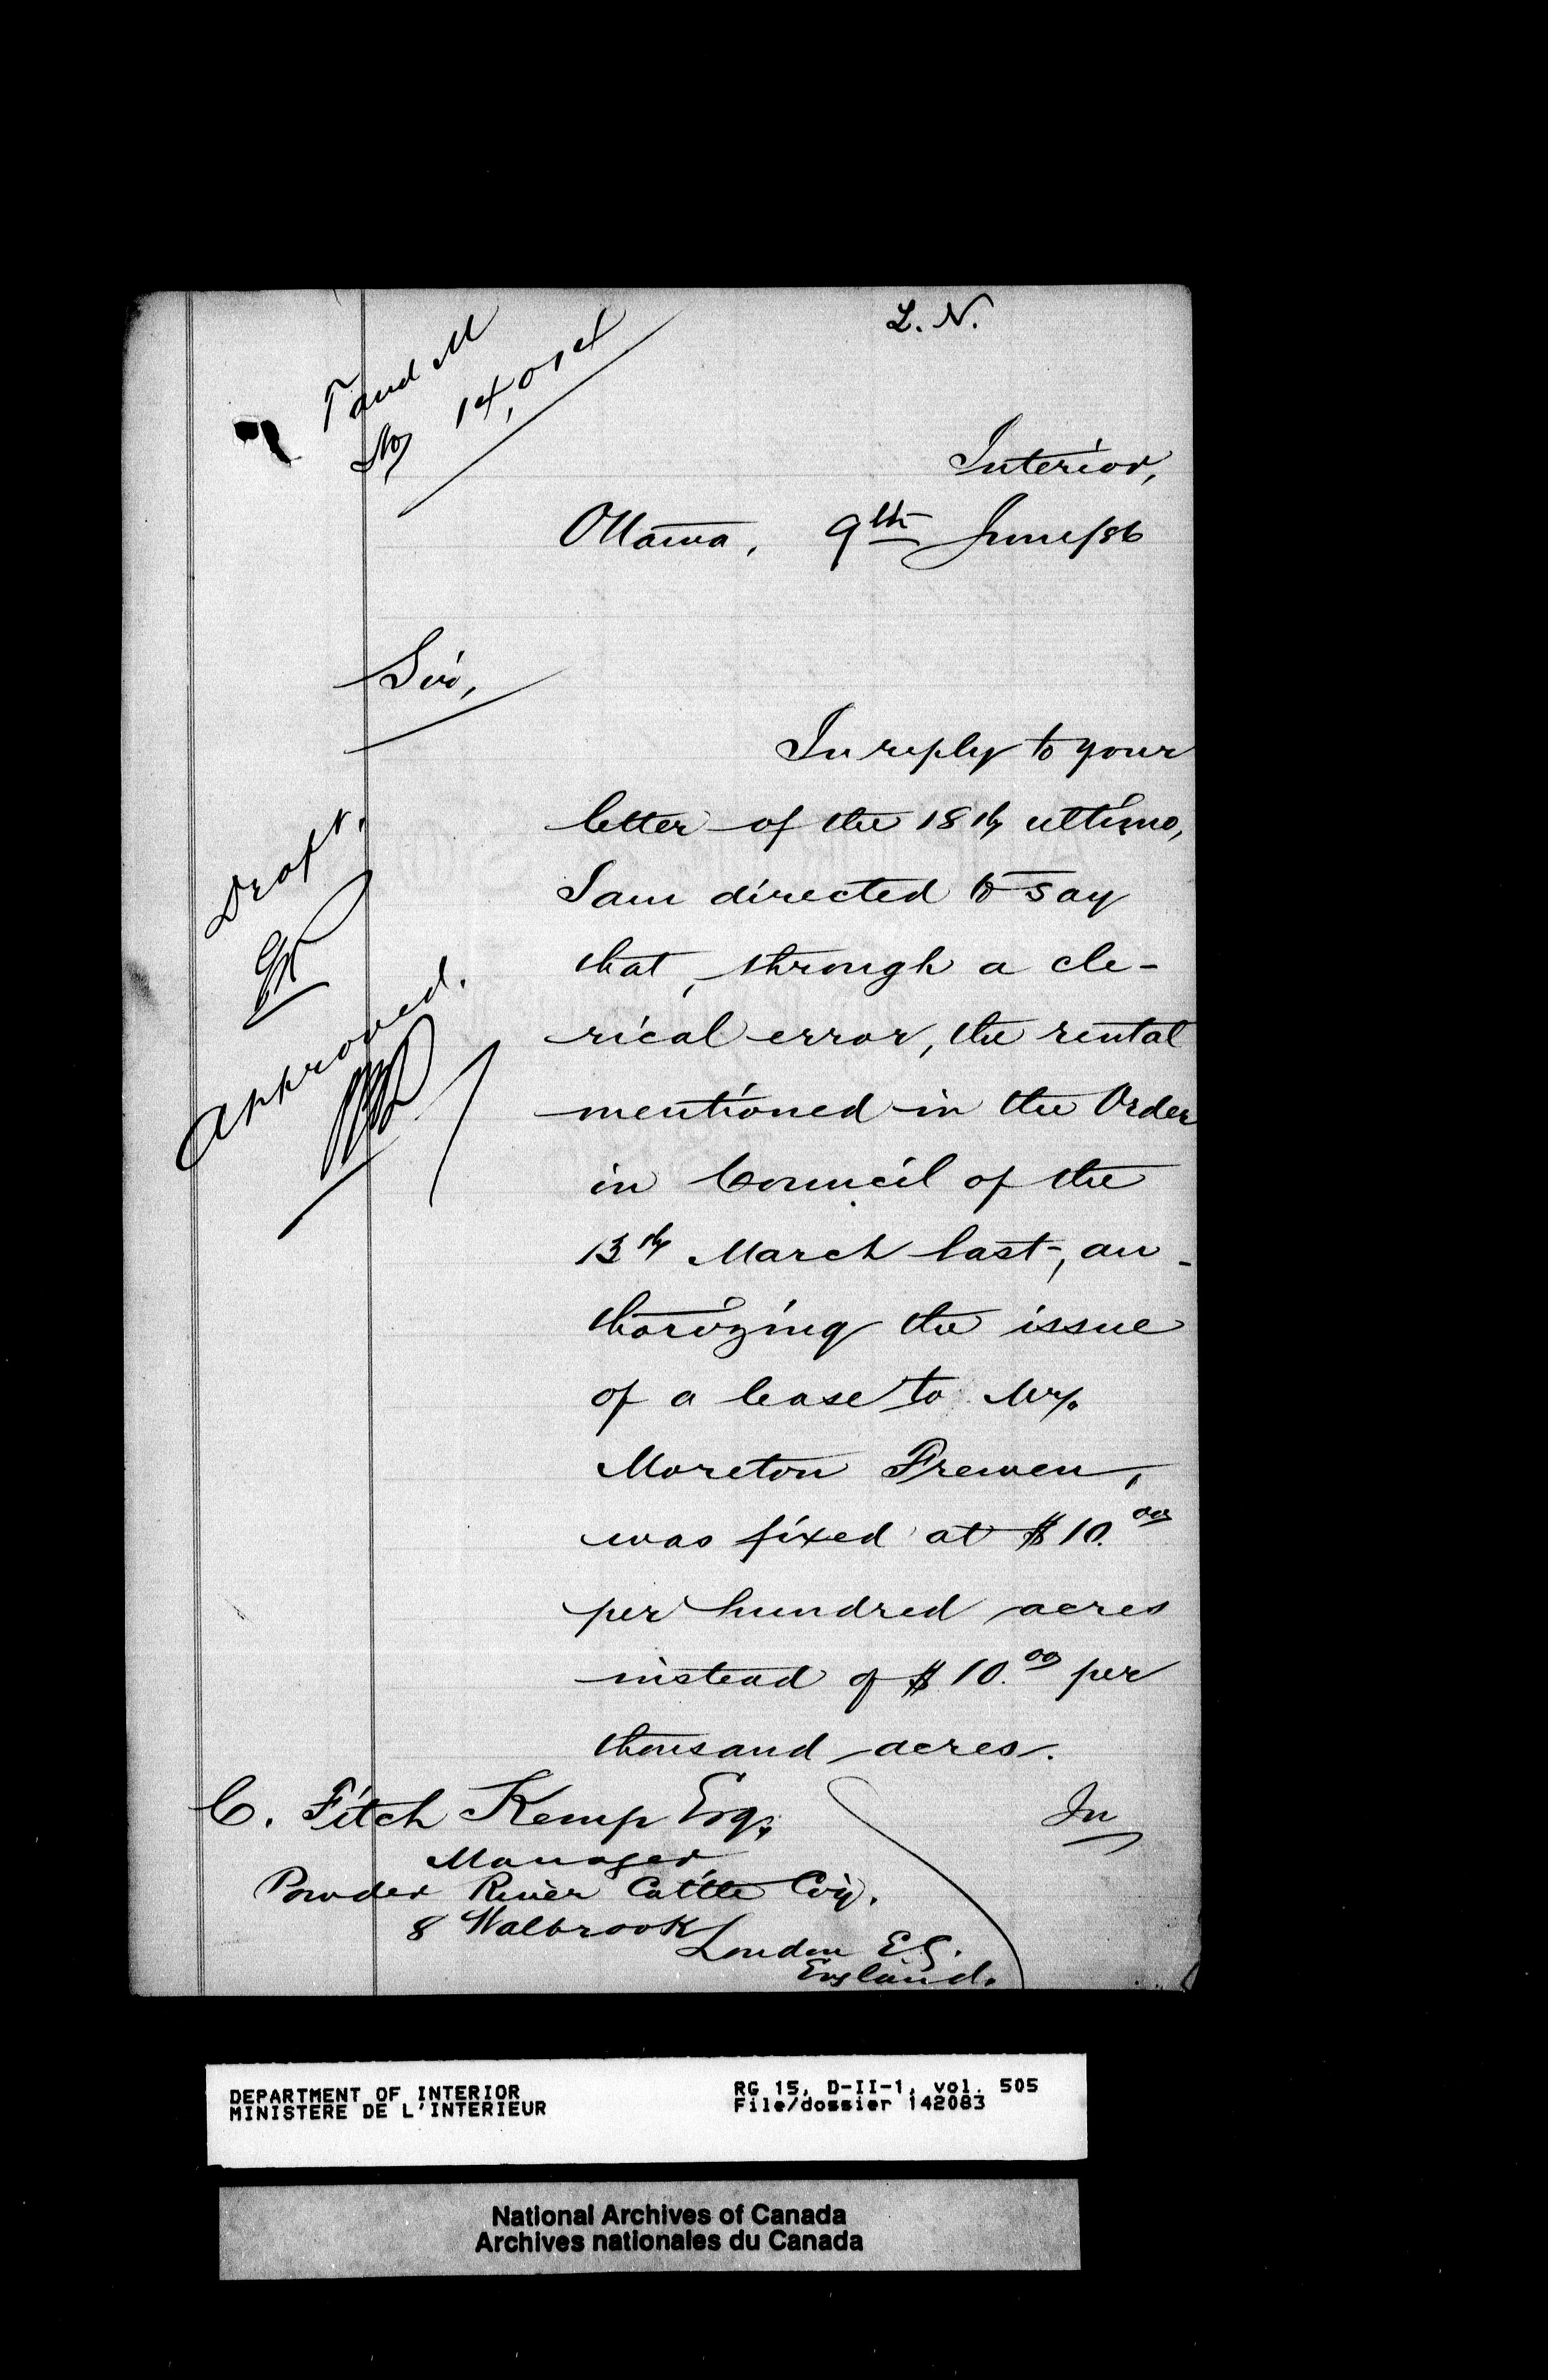 L. N.
T and M
No 14,014
Interior,
Ottawa, 9th June/86
Sir,
In reply to your
letter of the 18th ultimo,
I am directed to say
that, through a cle-
rical error, the rental
mentioned in the Order
in Council of the
13th March last, au-
thorizing the issue
of a lease to Mr.
Moreton Frewen,
was fixed at $10.00
per hundred acres
instead of $10.00 per
thousand acres.
In
Draft.
Approved.
C. Fitch Kemp Esq,
Manager
Powder River Cattle Coy.
8 Walbrook
London E.C.
England.
DEPARTMENT OF INTERIOR
MINISTERE DE L'INTERIEUR
RG 15, D-II-1, vol. 505
File/dossier 142083
National Archives of Canada
Archives nationales du Canada